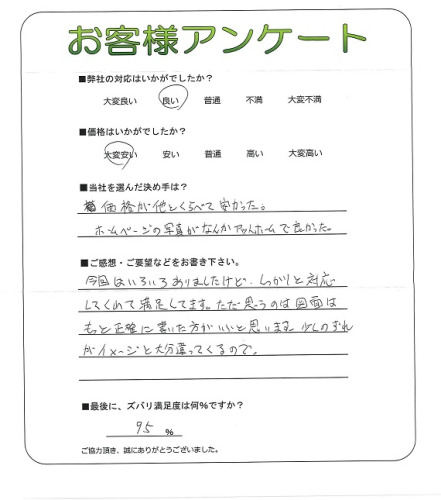 お客様アンケート
■弊社の対応はいかがでしたか？
大変良い 良い 普通 不満 大変不満
■価格はいかがでしたか？
大変安い 安い 普通 高い 大変高い
■当社を選んだ決め手は？
価格が他とくらべて安かった。
ホームページの写真がなんかアットホームで良かった。
■ご感想・ご要望などをお書き下さい。
今回はいろいろありましたけど、しっかりと対応
してくれて満足してます。ただ思うのは図面は
もっと正確に書いた方がいいと思います。少しのずれ
がイメージと大分違ってくるので。
■最後に、ズバリ満足度は何％ですか？
95 %
ご協力頂き、誠にありがとうございました。